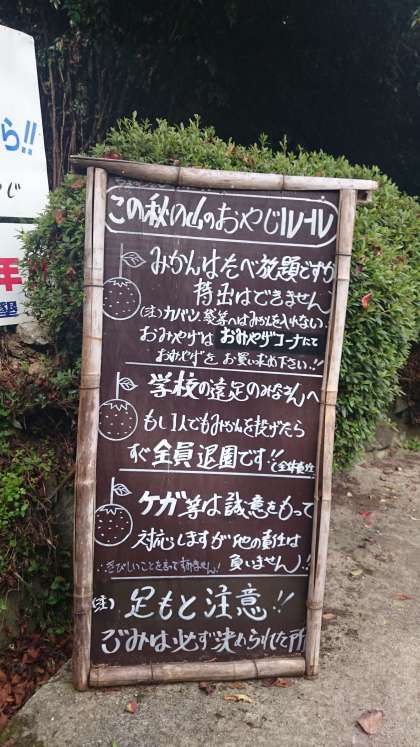 この秋の山のおやじルール
みかんはたべ放題ですが
持出はできません
(注)カバン、袋等へはみかんを入れない。
おみやげはおみやげコーナにて
おみやげをお買い求め下さい!!
学校の遠足のみなさんへ
もし1人でもみかんを投げたら
すぐ全員退園です!!
ケガ等は誠意をもって
対応しますが他の責任は
負いません!!
(注)足もと注意!!
ごみは必ず決められた所
ら!!
やじ
年